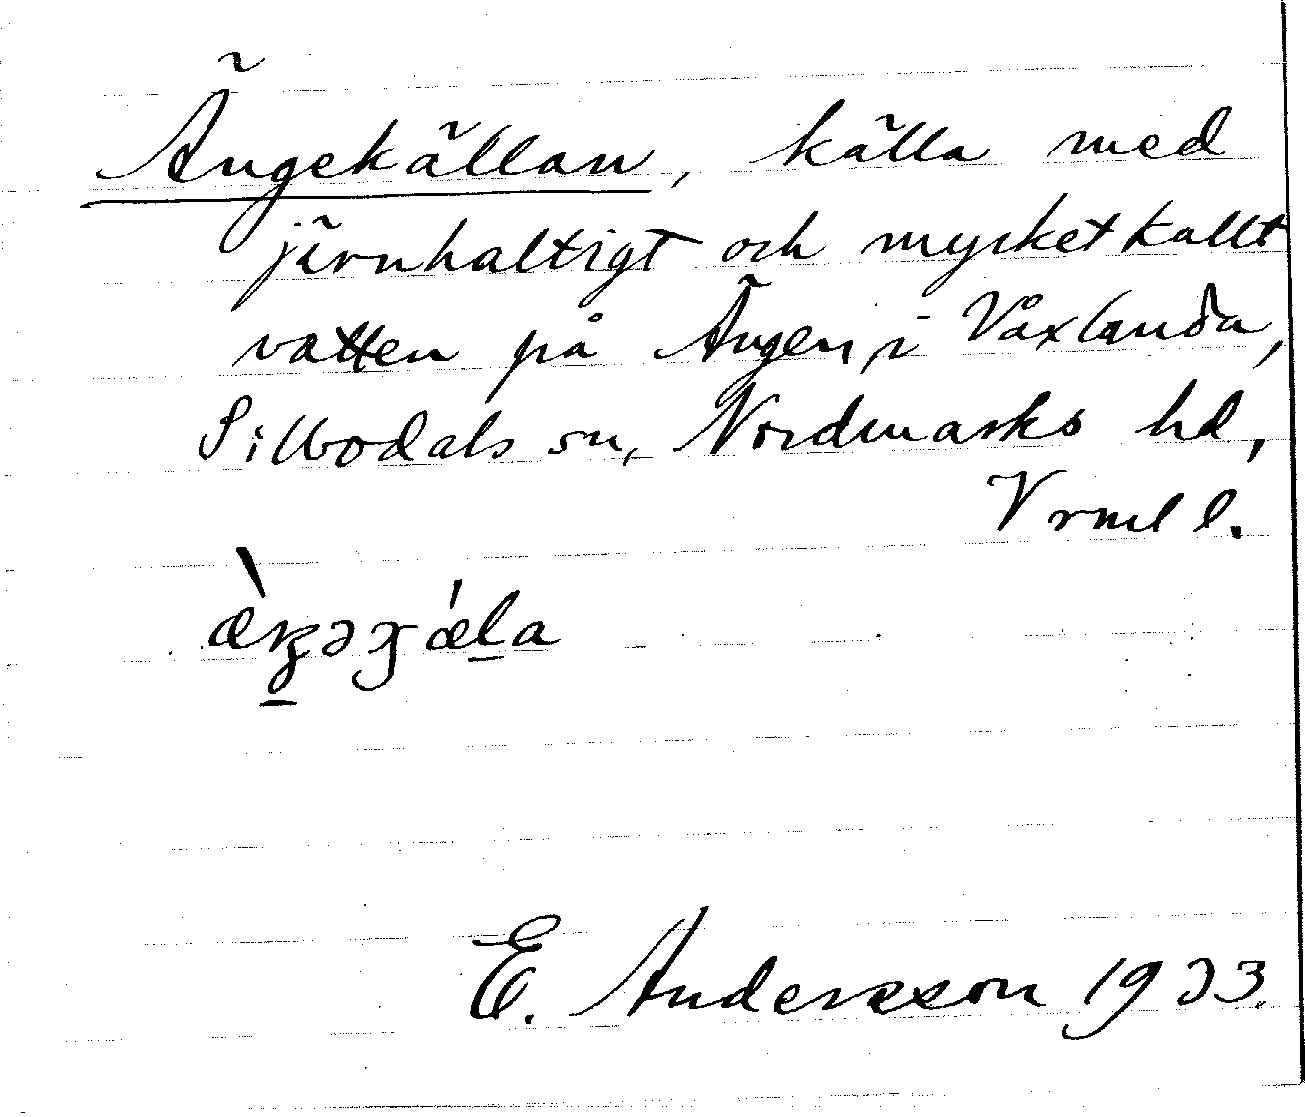 Ängekällan, källa med
järnhaltigt och mycket kallt
vatten på Ängen, i Våxlanda,
Sillbodals sn, Nordmarks hd,
Vrml l.
E. Andersson 1933.